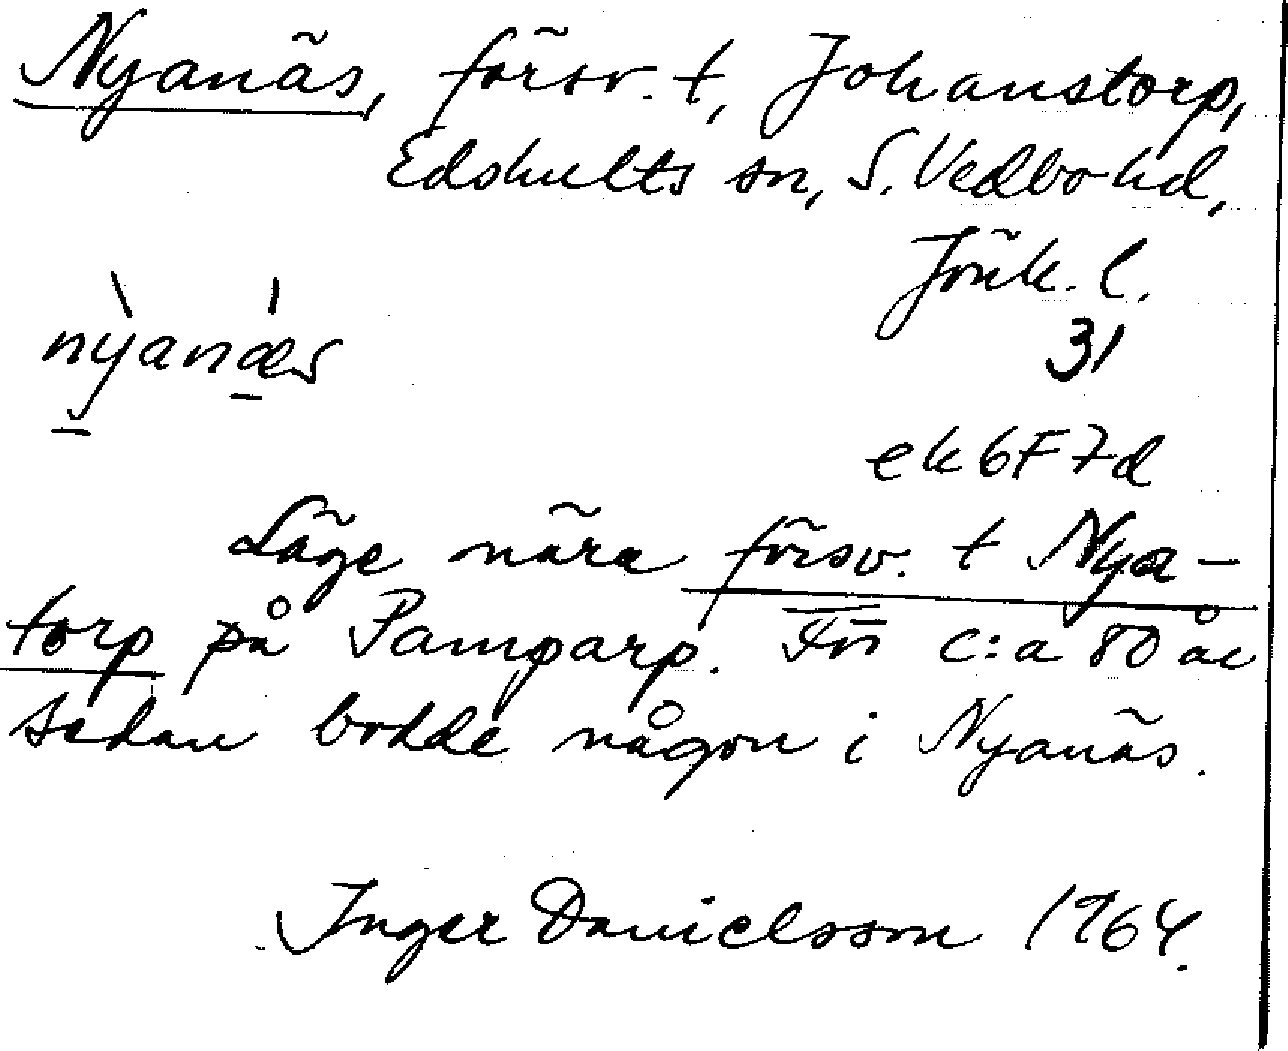 Nyanäs, försv. t, Johanstorp,
Edshults sn, S. Vedbo hd,
Jönk. l.
nỳanæ̀s
31
ek 6F7d
Läge nära försv. t Nya-
torp på Pamparp. För c:a 80 år
sedan bodde någon i Nyanäs.
Inger Danielsson 1964.